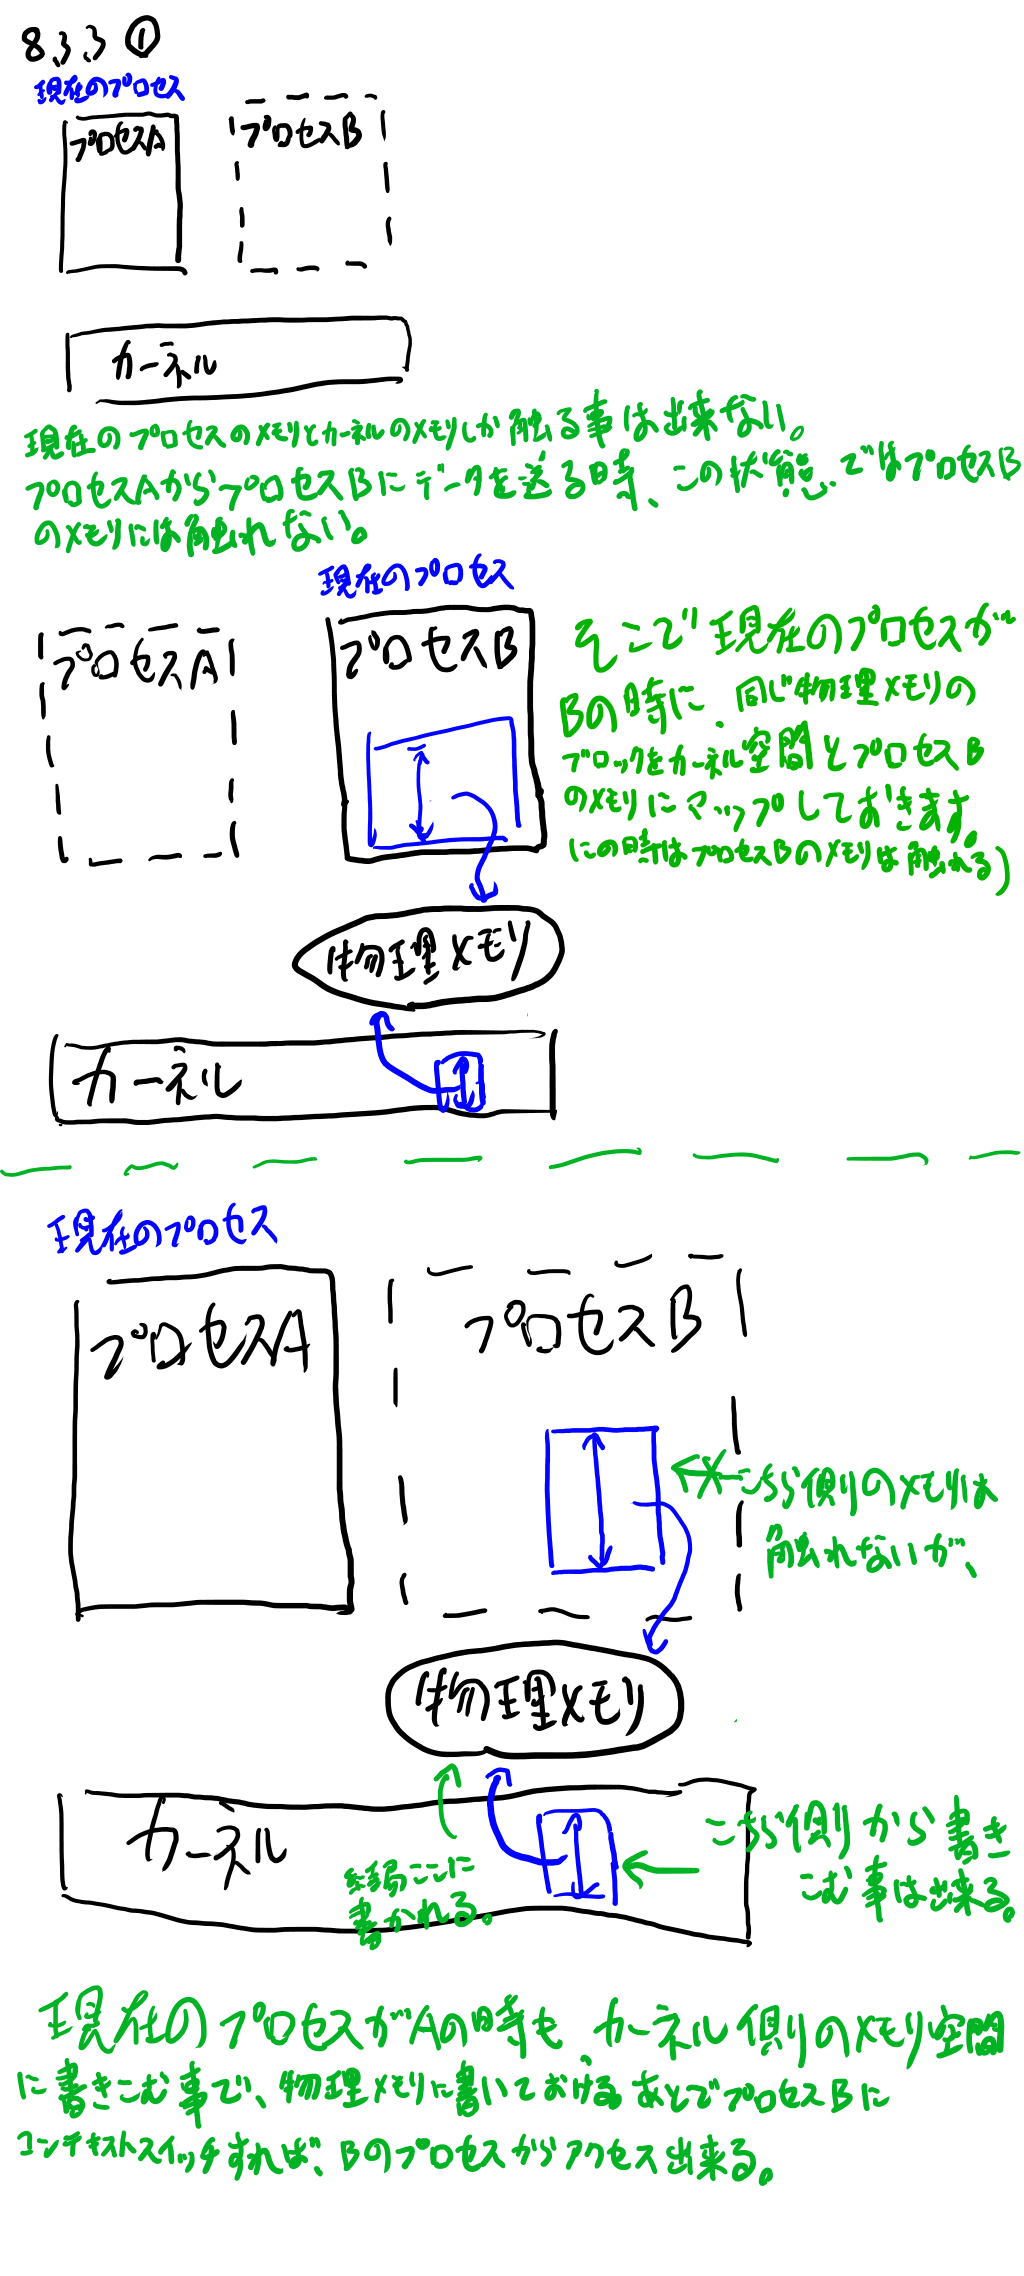 8,3,3 ①
現在のプロセス
プロセスA
プロセスB
カーネル
現在のプロセスのメモリとカーネルのメモリしか触る事は出来ない。
プロセスAからプロセスBにデータを送る時、この状態ではプロセスB
のメモリには触れない。
現在のプロセス
プロセスA
プロセスB
そこで現在のプロセスが
Bの時に、同じ物理メモリの
ブロックをカーネル空間とプロセスB
のメモリにマップしておきます。
(この時はプロセスBのメモリは触れる)
物理メモリ
カーネル
現在のプロセス
プロセスA
プロセスB
こちら側のメモリは
触れないが、
物理メモリ
カーネル
結局ここに
書かれる。
こちら側から書き
こむ事は出来る。
現在のプロセスがAの時も、カーネル側のメモリ空間
に書きこむ事で、物理メモリに書いておける。あとでプロセスBに
コンテキストスイッチすれば、Bのプロセスからアクセス出来る。